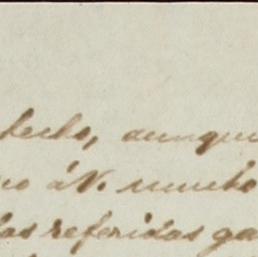 hecho, aunque
no á V. mucho
las referidas ga